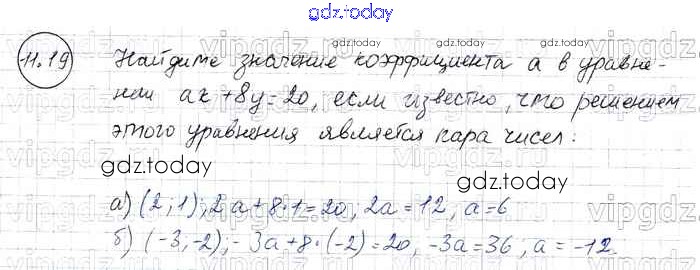 gdz.today
11.19 Найдите значение коэффициента a в уравне-
нии ax+8y=20, если известно, что решением
этого уравнения является пара чисел:
gdz.today
а) (2; 1); 2a+8·1=20, 2a=12, a=6
б) (-3; -2); -3a+8·(-2)=20, -3a=36, a=-12.